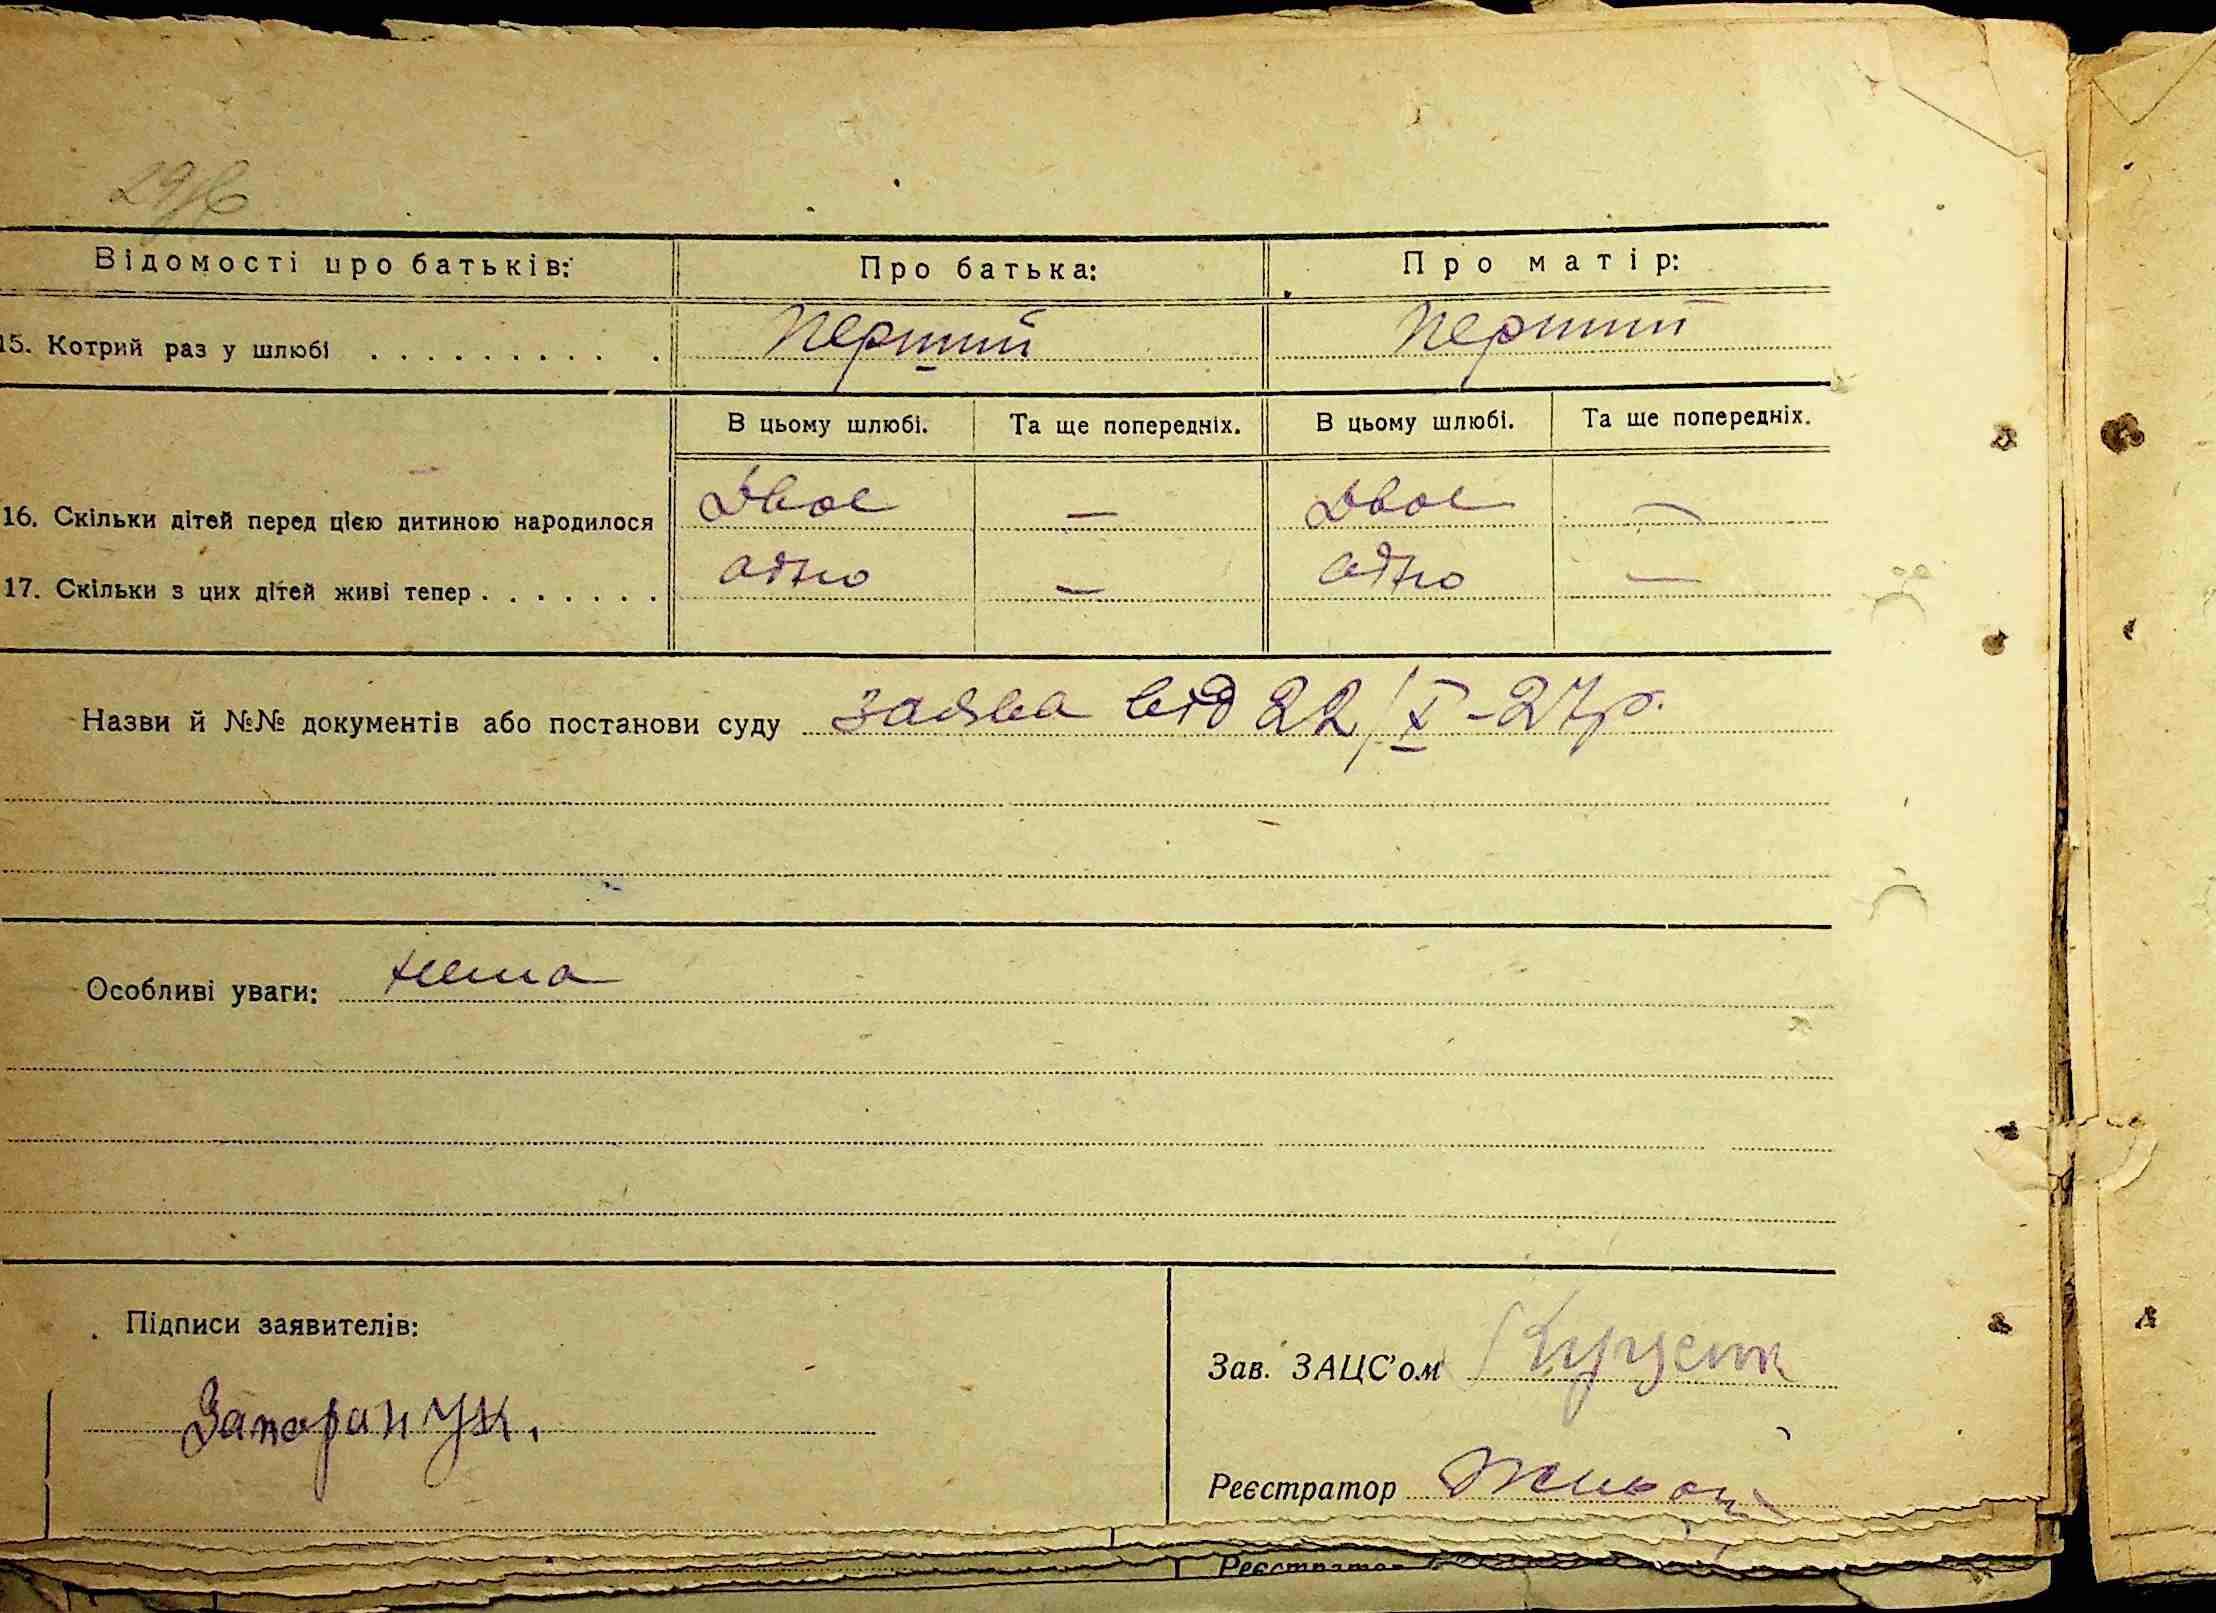 Відомості про батьків: Про батька: Про матір:
15. Котрий раз у шлюбі . . . . . . . . . . Перший Перший
В цьому шлюбі. Та ще попередніх. В цьому шлюбі. Та ще попередніх.
16. Скільки дітей перед цією дитиною народилося Двоє — Двоє —
17. Скільки з цих дітей живі тепер . . . . . . . одно — одно —
Назви й №№ документів або постанови суду заява від 22/X-27р.
Особливі уваги: нема
Підписи заявителів:
Зав. ЗАЦС'ом
Реєстратор
Реєстратор